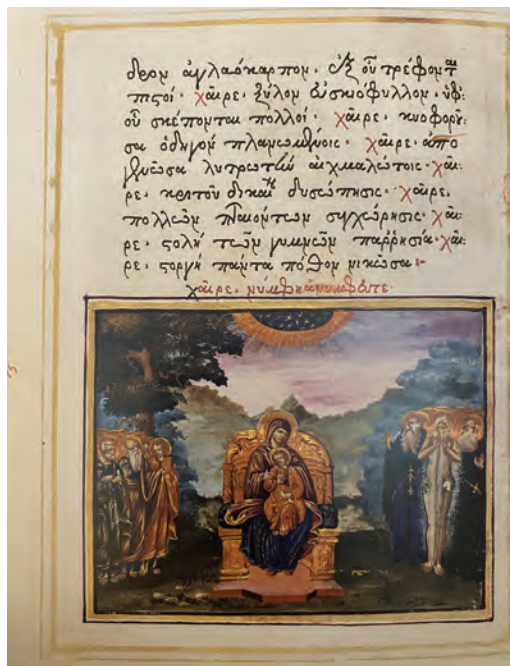 δρον ἀγλαόκαρπον· ἐξ οὗ τρέφονται
πιστοί· χαῖρε, ξύλον εὐσκιόφυλλον, ὑφ'
οὗ σκέπονται πολλοί· χαῖρε, κυοφοροῦ
σα ὁδηγὸν πλανωμένοις· χαῖρε, ἀπο
γεννῶσα λυτρωτὴν αἰχμαλώτοις· χαῖ
ρε, κριτοῦ δικαίου δυσώπησις· χαῖρε,
πολλῶν πταιόντων συγχώρησις· χαῖ
ρε, στολὴ τῶν γυμνῶν παρρησία· χαῖ
ρε, στοργὴ πάντα πόθον νικῶσα·
χαῖρε, νύμφη ἀνύμφευτε·